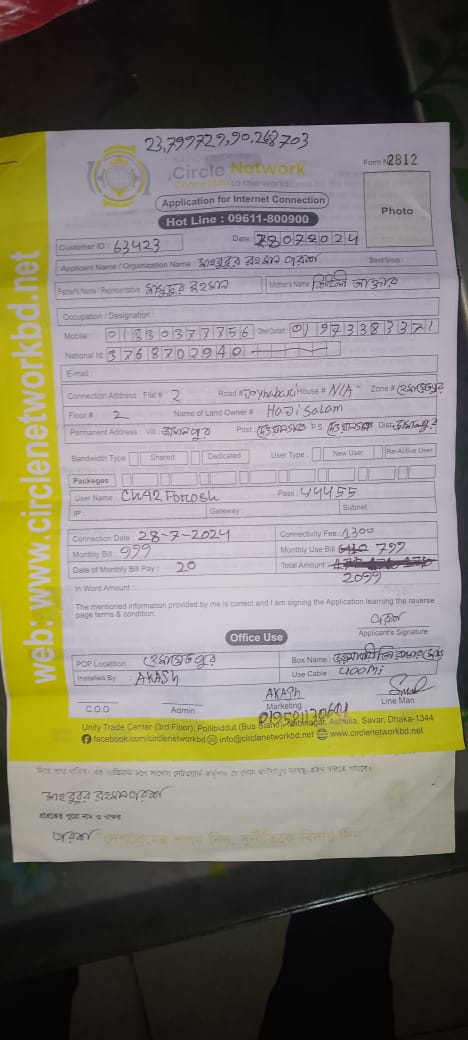 23,799729,90,268703
iCircle Network
Connected to the world
Form N 2812
Application for Internet Connection
Photo
Hot Line : 09611-800900
Customer ID : 63423
Date: 28072024
Applicant Name / Organization Name : মাহবুবুর রহমান পরশ
Blood Group :
Father's Name / Representative রহমান
Mother's Name আক্তার
Occupation / Designation :
Mobile : 01830377756
Other Contact : 01973383371
National Id : 3768702940
E-mail :
Connection Address Flat # 2 Road # Joynabari House # N/A Zone # হেমায়েতপুর
Floor # 2 Name of Land Owner # Haji Salam
Permanent Address Vill জামালপুর Post P.S. Dist জামালপুর
Bandwidth Type Shared Dedicated User Type : New User Re-Active User
Packages
User Name : Pass : 44455
IP : Gateway : Subnet :
Connection Date : 28-7-2024 Connectivity Fee : 1300
Monthly Bill : 999 Monthly Use Bill 799
Date of Monthly Bill Pay : 20 Total Amount :
2099
In Word Amount :
The mentioned information provided by me is correct end I am signing the Application learning the reverse
page terms & condition.
পরশ
Applicant's Signature
Office Use
POP Location হেমায়েতপুর Box Name :
Installed By AKASH Use Cable : 400Mi
AKASH
C.O.O Admin Marketing Line Man
Unity Trade Center (3rd Floor), Pollibiddut (Bus Stand), Nabinagar, Ashulia, Savar, Dhaka-1344
facebook.com/circlenetworkbd info@circlenetworkbd.net www.circlenetworkbd.net
web: www.circlenetworkbd.net
মাহবুবুর রহমান পরশ
গ্রাহকের পুরো নাম ও স্বাক্ষর
পরশ